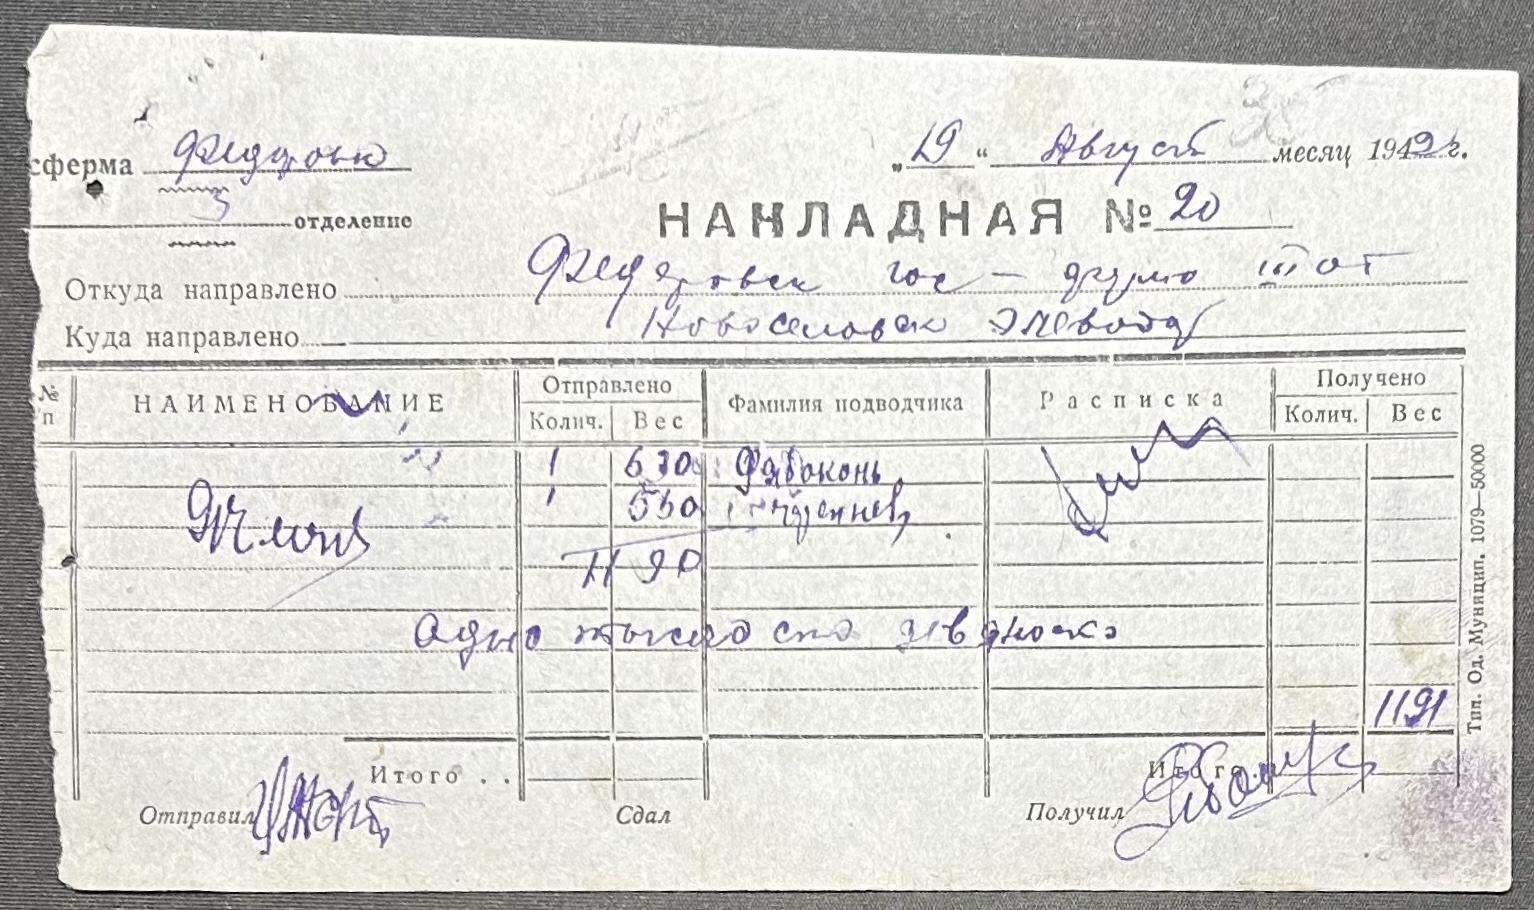 сферма Федоровк
„19“ Август месяц 1942 г.
3 отделение
НАКЛАДНАЯ № 20
Откуда направлено Федоровск гос-
Куда направлено Новоселовск Элеватор
№ п НАИМЕНОВАНИЕ Отправлено Колич. Вес Фамилия подводчика Расписка Получено Колич. Вес
1 630 Рябоконь
Ячмень 1 560
1190
Одно тысяча сто девяносто
1191
Итого . . Итого
Отправил Сдал Получил Рябоконь
Тип. Од. Муницип. 1079—50000